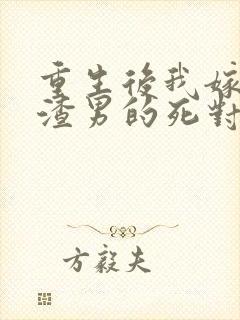 重生後我嫁
渣男的死對
方毅夫